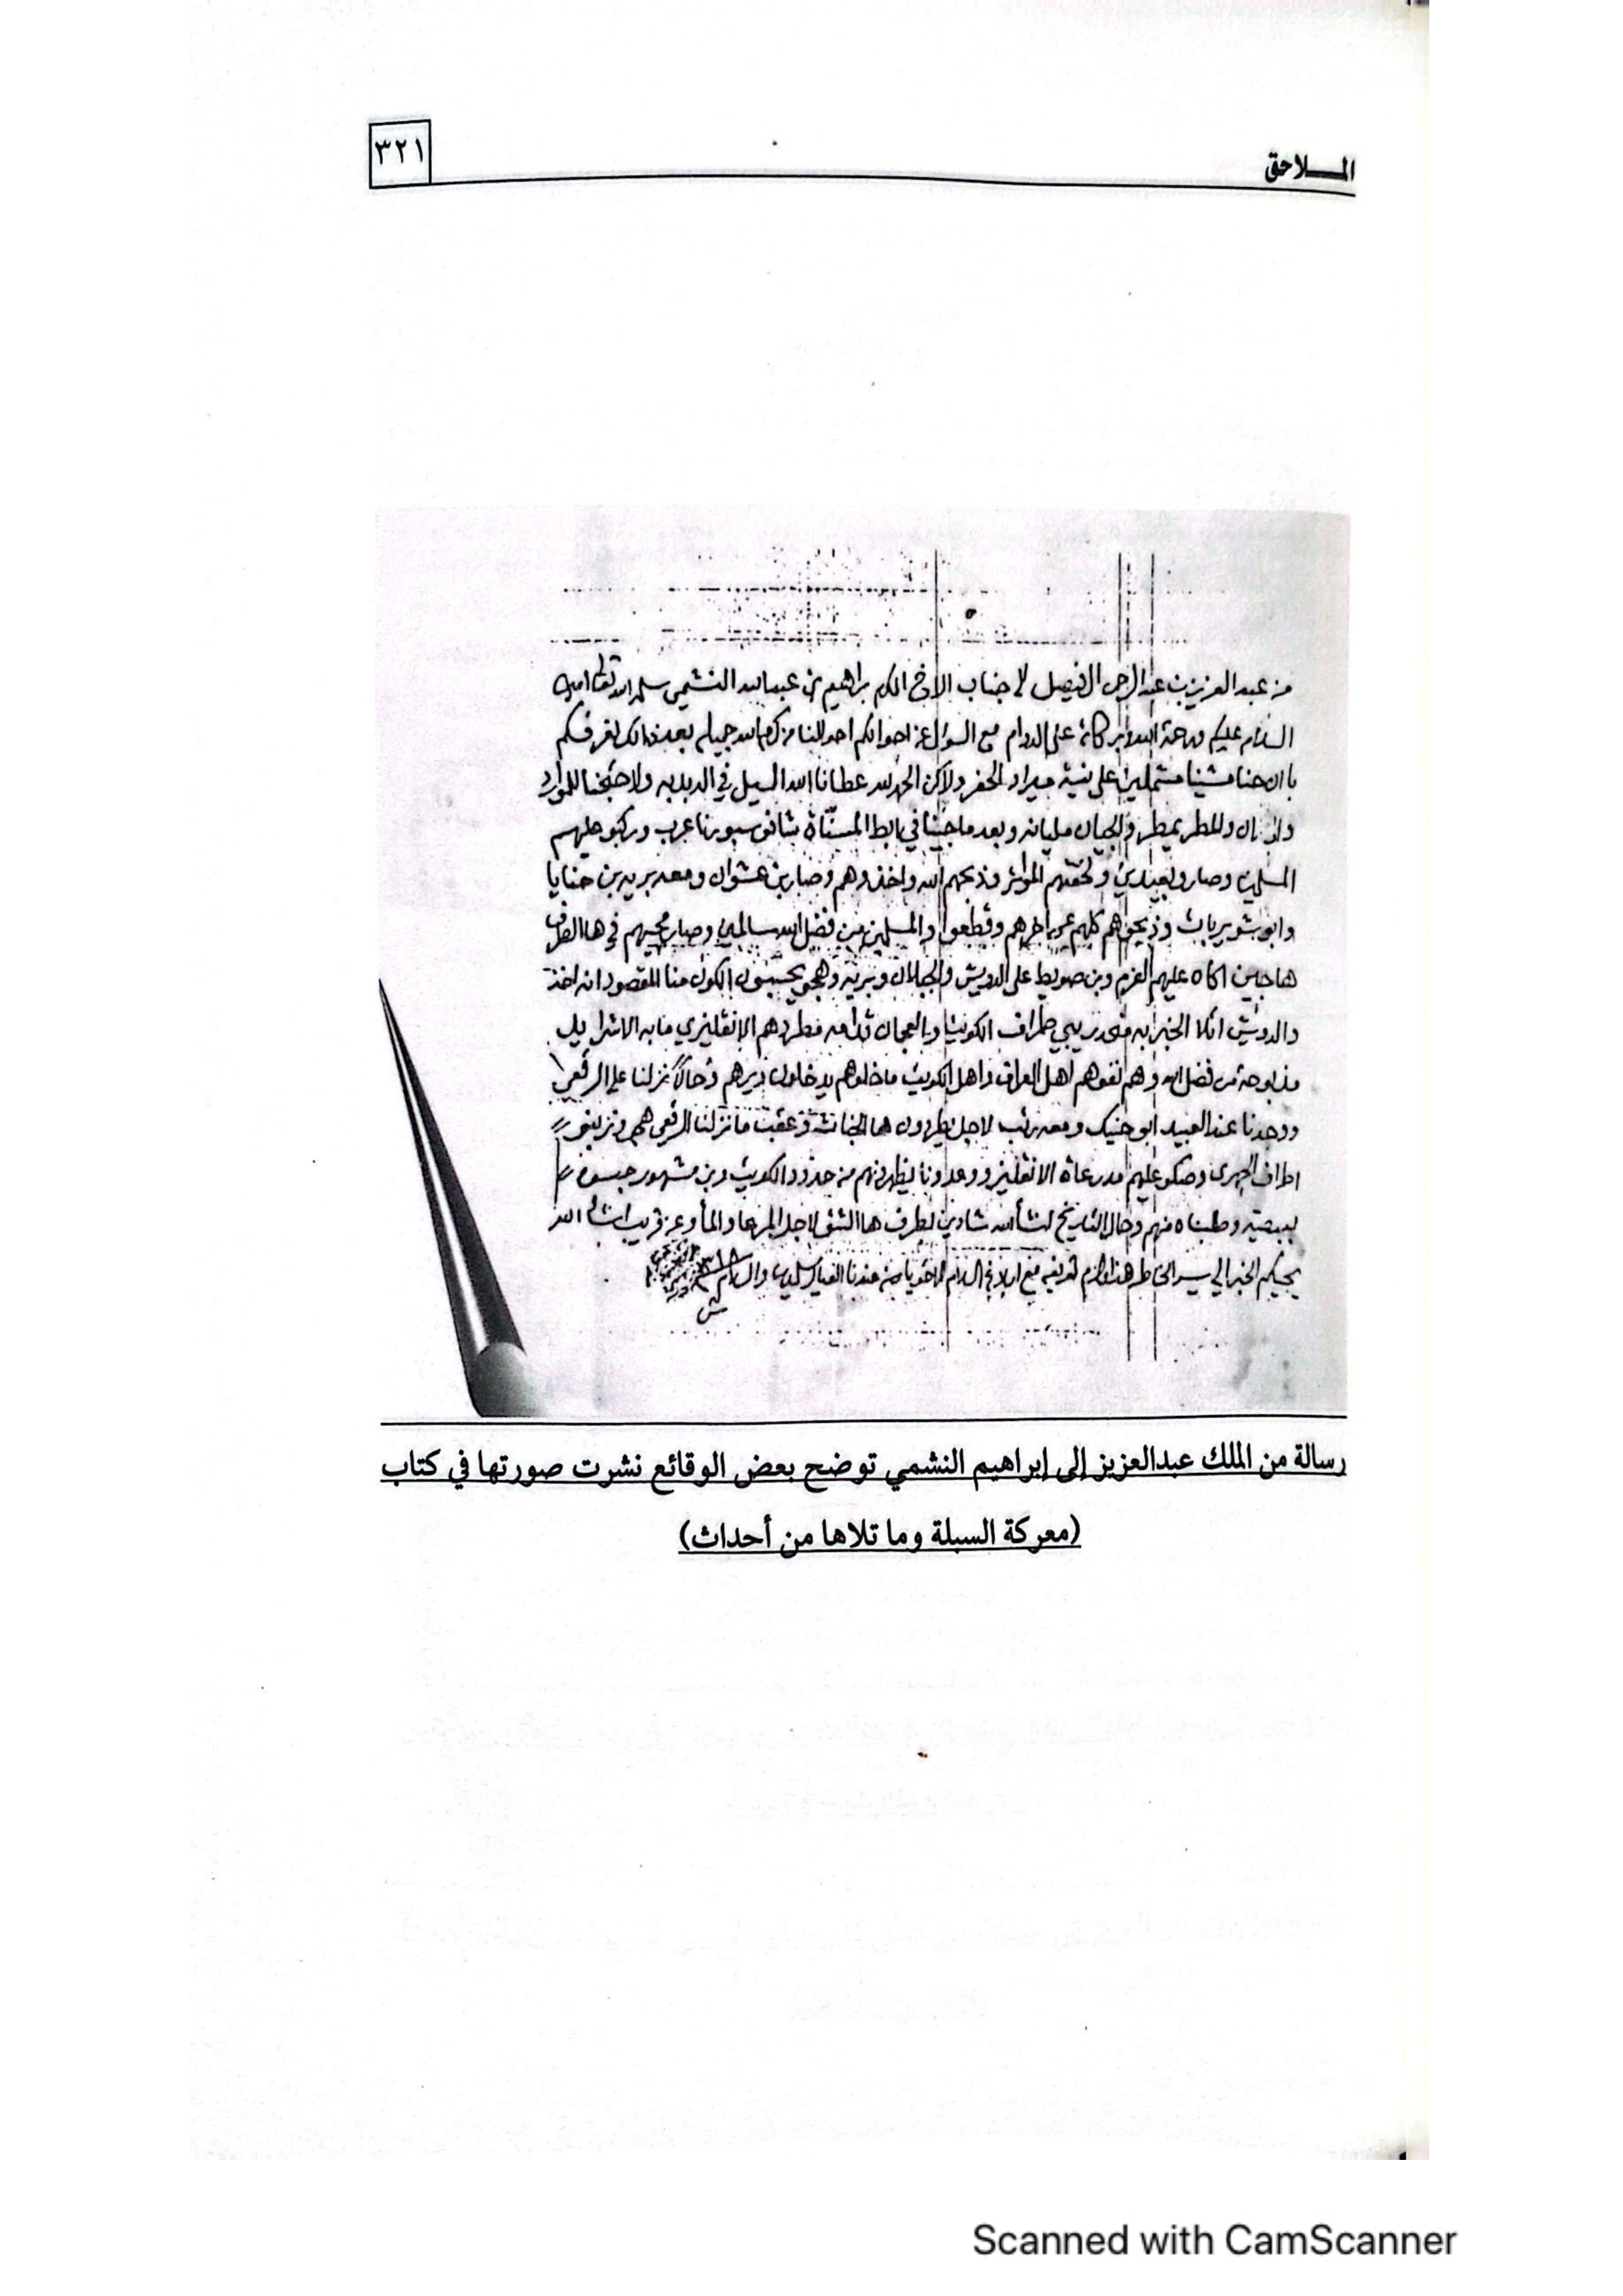 الملاحق
٣٢١
من عبد العزيز بن عبد الرحمن ال فيصل الى جناب الاخ المكرم براهيم بن عبدالله النشمي سلمه الله تعالى امين
السلام عليكم ورحمة الله وبركاته على الدوام مع السؤال عن احوالكم احوالنا من كرم الله جميله بعد ذالك نعرفكم
با ان حنا مشينا مشملين على نية ميراد الحفر ولاكن الحمدلله عطانا الله السيل في الدبدبه ولا حتجنا للموارد
والمطر يمطر والجيان مليانه وبعد ما جينا في بابط المسناة شافو سبورنا عرب وركبو عليهم
المسلمين وصارو لعبيدي ولحقتهم المواتر وذبحهم الله واخذوهم وصار بن عشوان ومعه بريه بن حنايا
وابو شويربات وذبحوهم كلهم عن اخرهم وقطعوا والمسلمين من فضل الله سالمين وصار مجيهم في ها الفراق
هاجين اكاه عليهم العزم وبن صويط على الدويش والجبلان وبريه وهم يحسبون الكون منا المقصود انه اخذ
والدويش اتلا الخبر به طراف الكويت والعجمان قدامه فطردهم الانقليزي
مذبوحة من فضل الله وهم نفوهم اهل العراق واهل الكويت ما خلوهم يدخلون ديرهم وحالاً نزلنا على الرقعي
ووجدنا عند العبيد ابو حنيك ومعه لاجل يطردون ها الخباث وعقب ما نزلنا الرقعي
اطراف الجهرى وصكو عليهم مدرعات الانقليز ووعدونا يظهرونهم من حدود الكويت وبن مشهور حبسوه
وطلبناه منهم وحال التاريخ انشأالله شادين لطرف ها الشق لاجل المرعا والمأ وعن قريب انشالله
يجيكم الخبر الي يسر الخاطر هذا ما لزم تعريفه مع ابلاغ السلام ومن عندنا العيال يسلمون والسلام
رسالة من الملك عبدالعزيز إلى إبراهيم النشمي توضح بعض الوقائع نشرت صورتها في كتاب
(معركة السبلة وما تلاها من أحداث)
Scanned with CamScanner